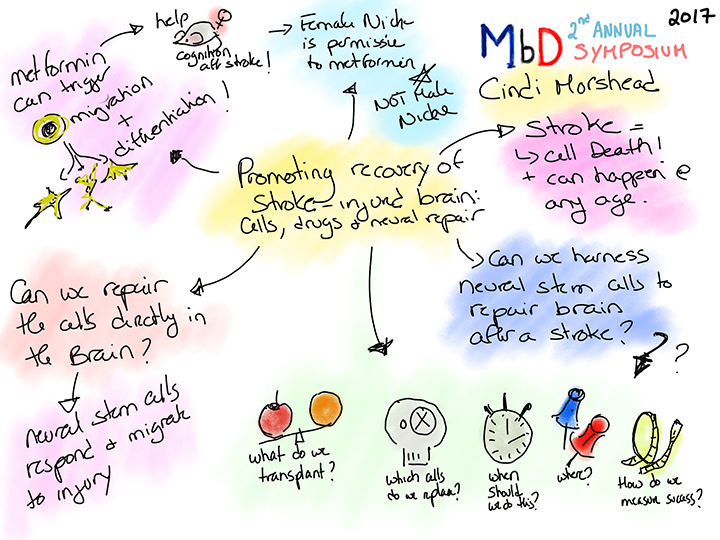 2017
MbD 2nd ANNUAL
SYMPOSIUM
Cindi Morshead
Promoting recovery of
stroke-injured brain:
cells, drugs & neural repair
Stroke =
↳ cell Death!
+ can happen @
any age.
Can we harness
neural stem cells to
repair brain
after a stroke?
?
what do we
transplant?
which cells
do we replace?
when
should
we do this?
where?
How do we
measure success?
Can we repair
the cells directly in
the Brain?
neural stem cells
respond & migrate
to injury
metformin
can trigger
migration
+
differentiation!
help
cognition
aft stroke!
Female Niche
is permissie
to metformin
NOT Male
Niche